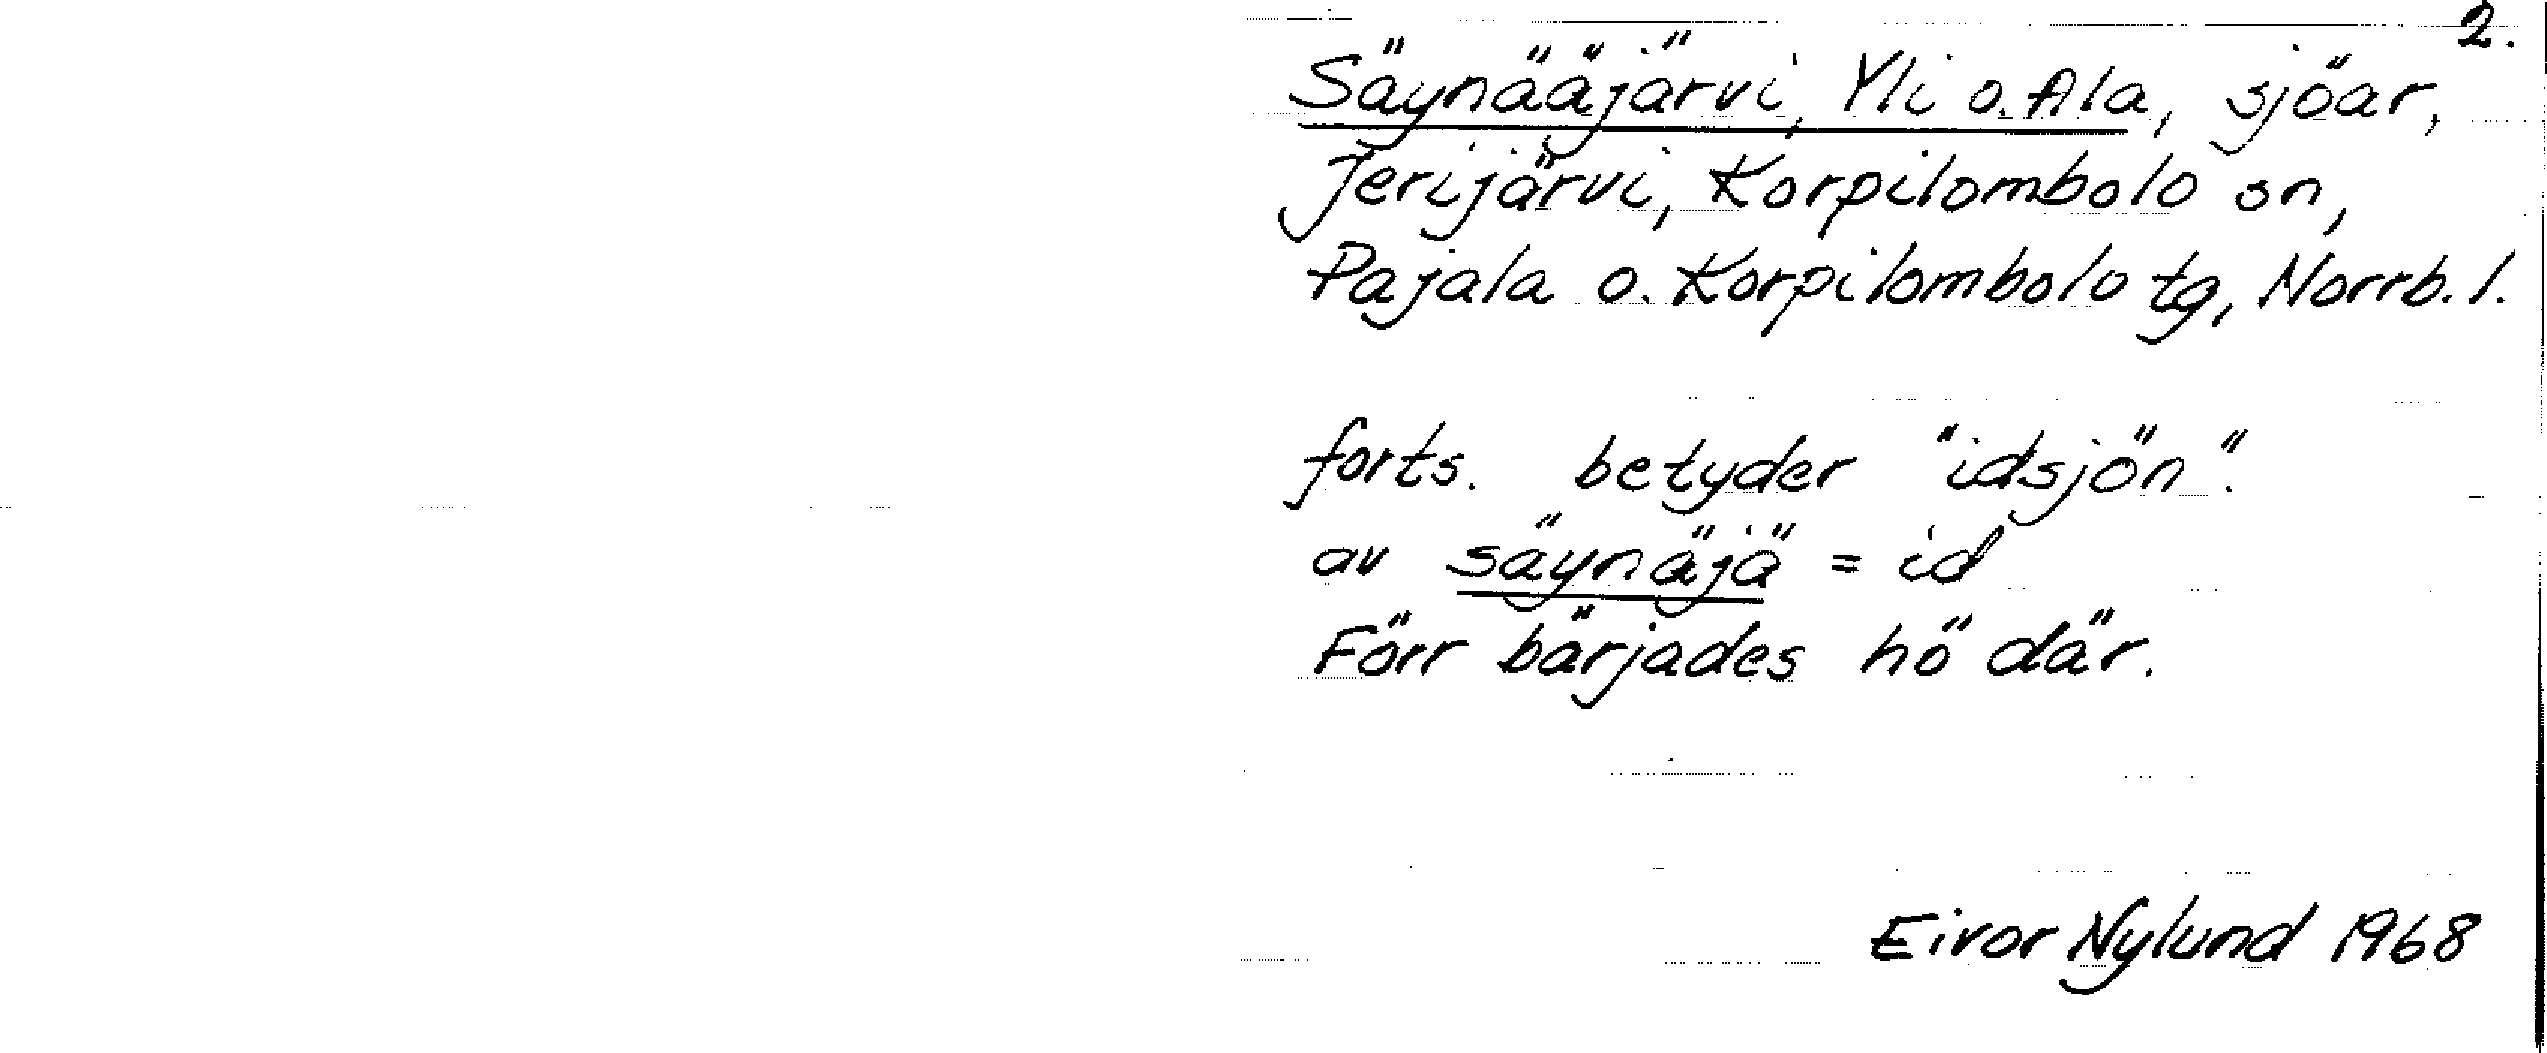 2.
Säynääjärvi, Yli o. Ala, sjöar,
Jerijärvi, Korpilombolo sn,
Pajala o. Korpilombolo tg, Norrb. l.
forts. betyder "idsjön".
av säynäjä = id
Förr bärjades hö där.
Eivor Nylund 1968